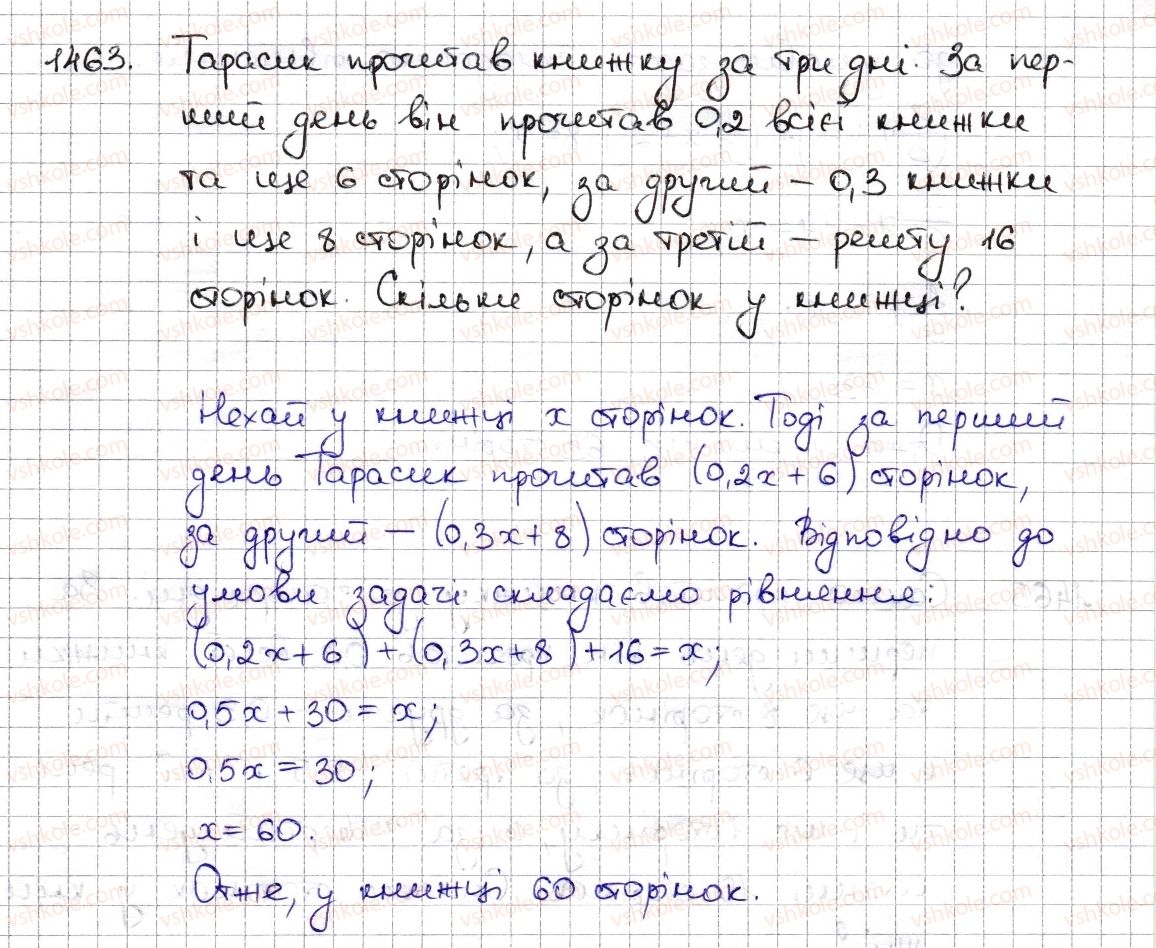 1463. Тарасик прочитав книжку за три дні. За пер-
ший день він прочитав 0,2 всієї книжки
та ще 6 сторінок, за другий – 0,3 книжки
і ще 8 сторінок, а за третій – решту 16
сторінок. Скільки сторінок у книжці?
Нехай у книжці x сторінок. Тоді за перший
день Тарасик прочитав (0,2x + 6) сторінок,
за другий – (0,3x + 8) сторінок. Відповідно до
умови задачі складаємо рівняння:
(0,2x + 6) + (0,3x + 8) + 16 = x;
0,5x + 30 = x;
0,5x = 30;
x = 60.
Отже, у книжці 60 сторінок.